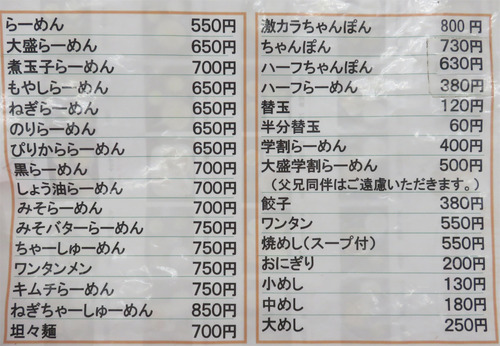 らーめん 550円
大盛らーめん 650円
煮玉子らーめん 700円
もやしらーめん 650円
ねぎらーめん 650円
のりらーめん 650円
ぴりかららーめん 650円
黒らーめん 700円
しょう油らーめん 700円
みそらーめん 700円
みそバターらーめん 750円
ちゃーしゅーめん 750円
ワンタンメン 750円
キムチらーめん 750円
ねぎちゃーしゅーめん 850円
坦々麺 700円
激カラちゃんぽん 800円
ちゃんぽん 730円
ハーフちゃんぽん 630円
ハーフらーめん 380円
替玉 120円
半分替玉 60円
学割らーめん 400円
大盛学割らーめん 500円
(父兄同伴はご遠慮いただきます。)
餃子 380円
ワンタン 550円
焼めし(スープ付) 550円
おにぎり 200円
小めし 130円
中めし 180円
大めし 250円